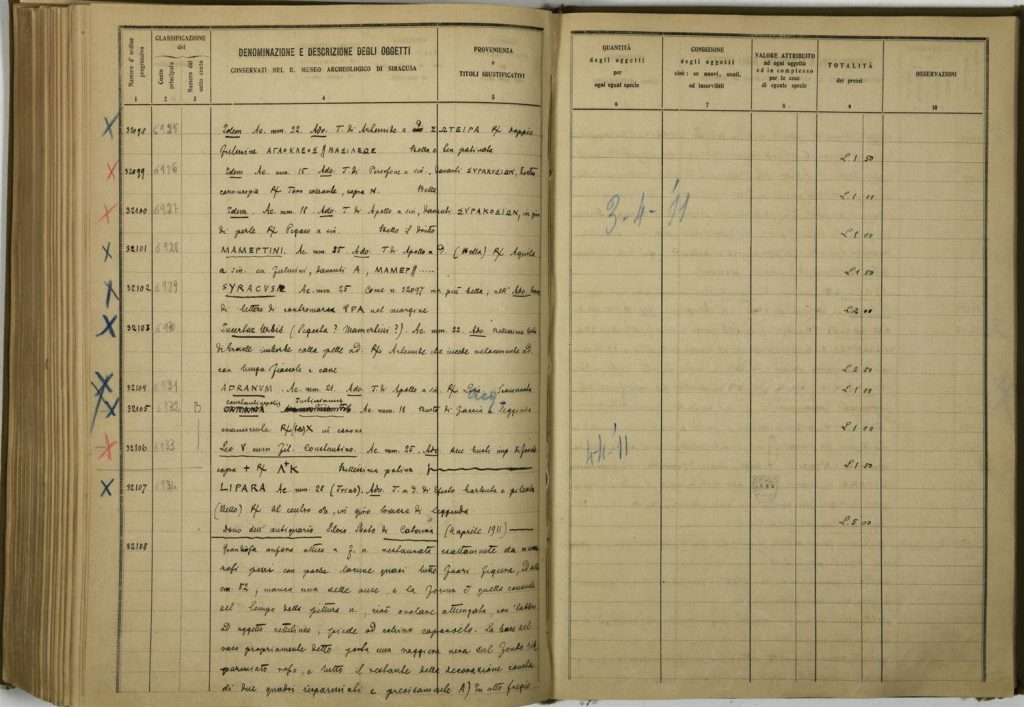 Numero d'ordine progressivo
CLASSIFICAZIONE del
Conto principale
Numero del sotto conto
DENOMINAZIONE E DESCRIZIONE DEGLI OGGETTI
CONSERVATI NEL R. MUSEO ARCHEOLOGICO DI SIRACUSA
PROVENIENZA
e
TITOLI GIUSTIFICATIVI
1 2 3 4 5
32098 6925 Idem Ae. mm. 22. Adv. T. di Artemide a D. ΣΩΤΕΙΡΑ Rx doppio
fulmine ΑΓΑΟΚΛΕΟΣ // ΒΑΣΙΛΕΩΣ Bella e ben patinata
32099 6926 Idem Ae. mm. 15. Adv. T. di Persefone a sin., davanti ΣΥΡΑΚΟΣΙΩΝ, dietro
cornucopia Rx Toro corrente, sopra N. Bello
32100 6927 Idem. Ae. mm. 18. Adv. T. di Apollo a sin, davanti ΣΥΡΑΚΟΣΙΩΝ, in giro
di perle Rx Pegaso a sin. Bello il dritto
32101 6928 MAMERTINI. Ae. mm. 25. Adv. T. di Apollo a D. (Bella) Rx Aquila
a sin. su fulmini, davanti A, ΜΑΜΕΡ//.....
32102 6929 SYRACUSÆ Ae. mm. 25 Come n. 32097 ma più bella; nell'Adv.
di lettere di contromarca PPA nel margine
32103 6930 Incertae Urbis (Mamertini?). Ae. mm. 22. Adv. Bellissima testa
di Eracle imberbe colla pelle ad. Rx Artemide che incede velocemente ad.
con lunga fiaccola e cane
32104 6931 ADRANVM. Ae. mm. 21. Adv. T. di Apollo a sin. Rx Lira
Constantinopolis Justinianus
32105 6932 B CATANA Ae. mm. 18 Busto di faccia e leggenda
evanescente Rx X in corona
32106 6933 Leo V cum fil. Constantino. Ae. mm. 25. Adv due busti imp. di fronte
sopra + Rx Λ+Κ Bellissima patina
32107 6934 LIPARA Ae. mm. 28 (Trias). Adv. T. a d. di Efesto barbuto e pileato
(Bello) Rx Al centro in giro tracce di leggenda
Dono dell'antiquario Silvio di Catania (4 aprile 1911)
32108 Grandiosa anfora attica a f. n. restaurata esattamente da
pezzi con poche lacune quasi tutte fuori figura, ad alta
cm. 52, manca una delle anse, e la forma è quella consueta
del tempo della pittura n., cioè ovolare allungata, con labbro
ad oggetto piede ad echino capovolto. La base del
vaso propriamente detto porta una raggiera nera sul fondo
rosso, e tutto il restante della decorazione consta
di due quadri risparmiati e precisamente A) In alto fregio
QUANTITÀ
degli oggetti
per
ogni egual specie
CONDIZIONE
degli oggetti
cioè: se nuovi, usati,
od inservibili
VALORE ATTRIBUITO
ad ogni oggetto
ed in complesso
per le cose
di eguale specie
TOTALITÀ
dei prezzi
OSSERVAZIONI
6 7 8 9 10
L. 1 50
L. 1 00
3-4-'11
L. 1 00
L. 1 50
L. 2 00
L. 2 50
L. 1 00
L. 1 00
4-4-'11
L. 1 50
L. 5 00